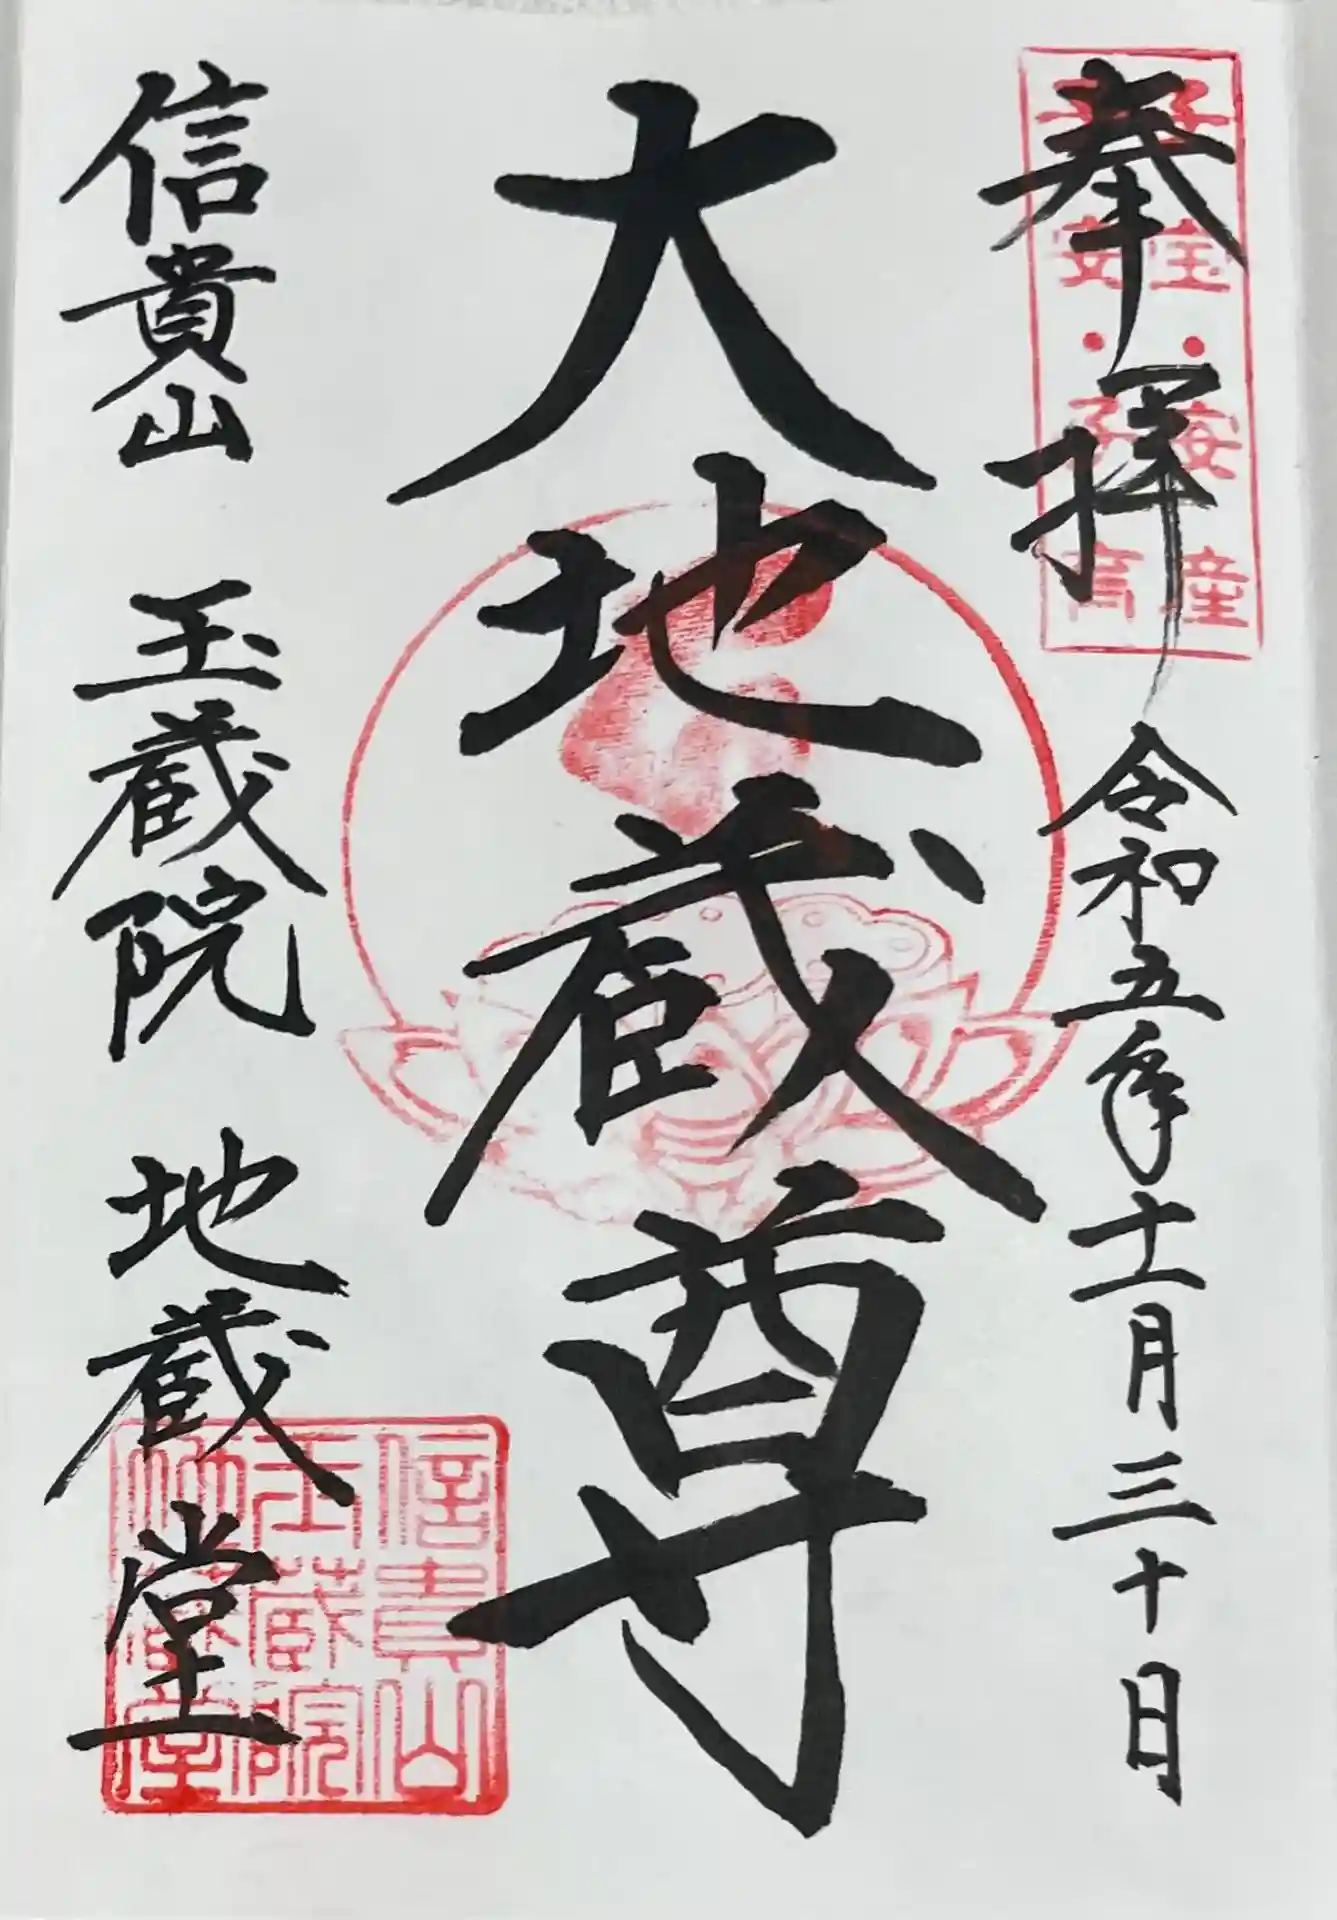 子宝・安産
子安・子育
奉拝 令和五年十二月三十日
大地蔵尊
信貴山 玉蔵院 地蔵堂
信貴山
玉蔵院
地蔵堂